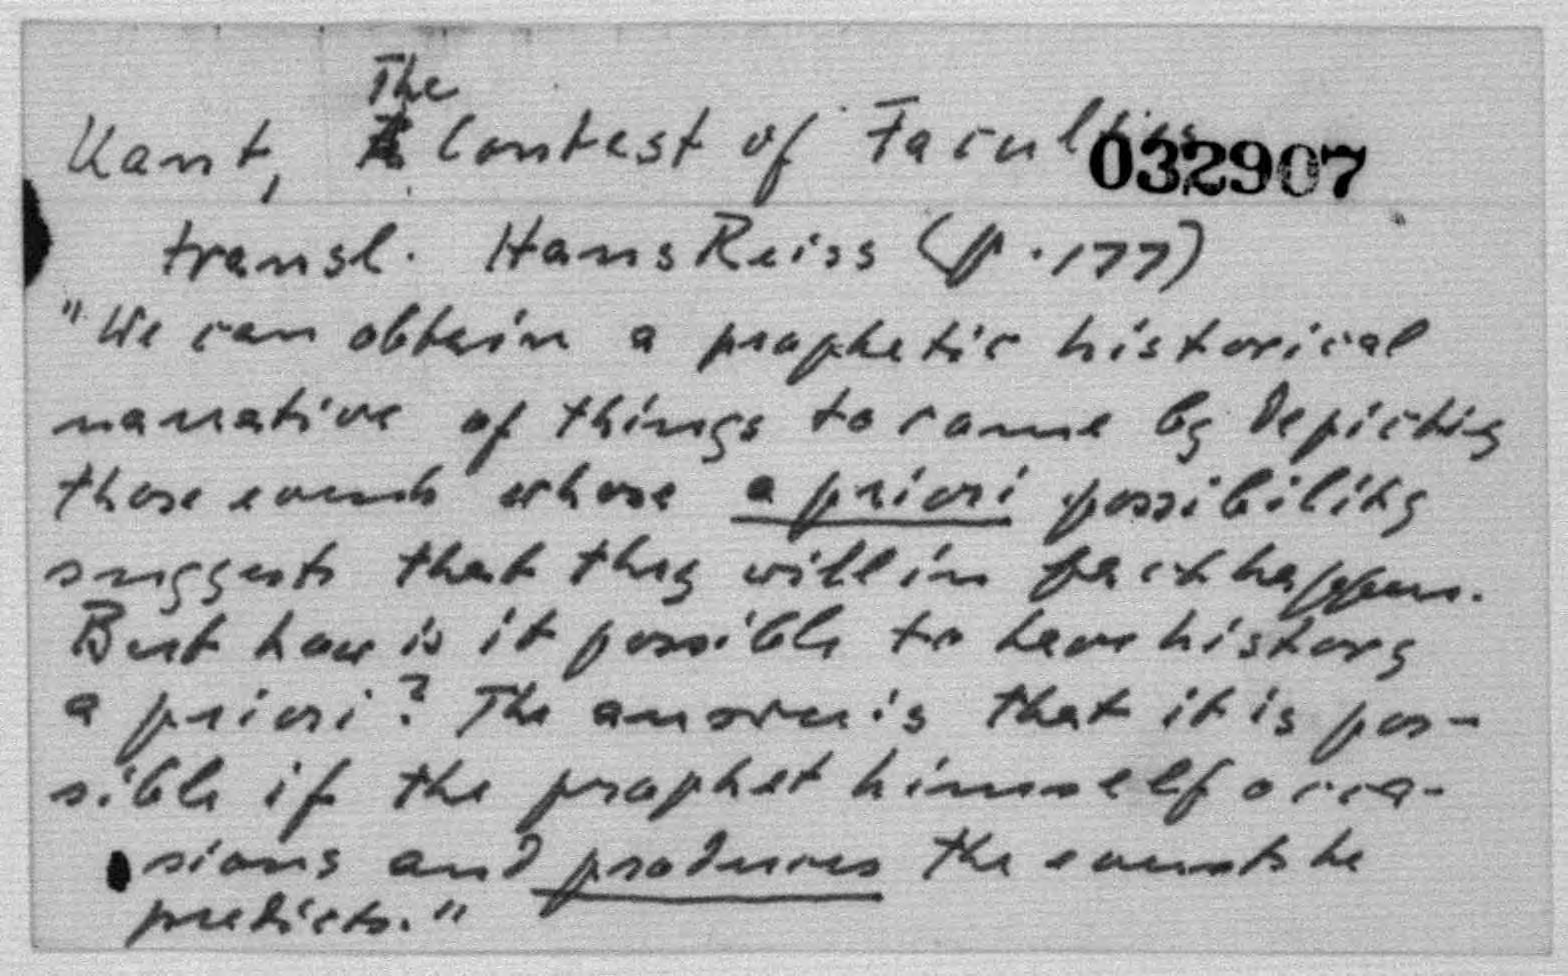 The
Kant, Contest of Faculties 032907
transl. Hans Reiss (p. 177)
"We can obtain a prophetic historical
narrative of things to come by depicting
those events whose a priori possibility
suggests that they will in fact happen.
But how is it possible to have history
a priori? The answer is that it is pos-
sible if the prophet himself occa-
sions and produces the events he
predicts."